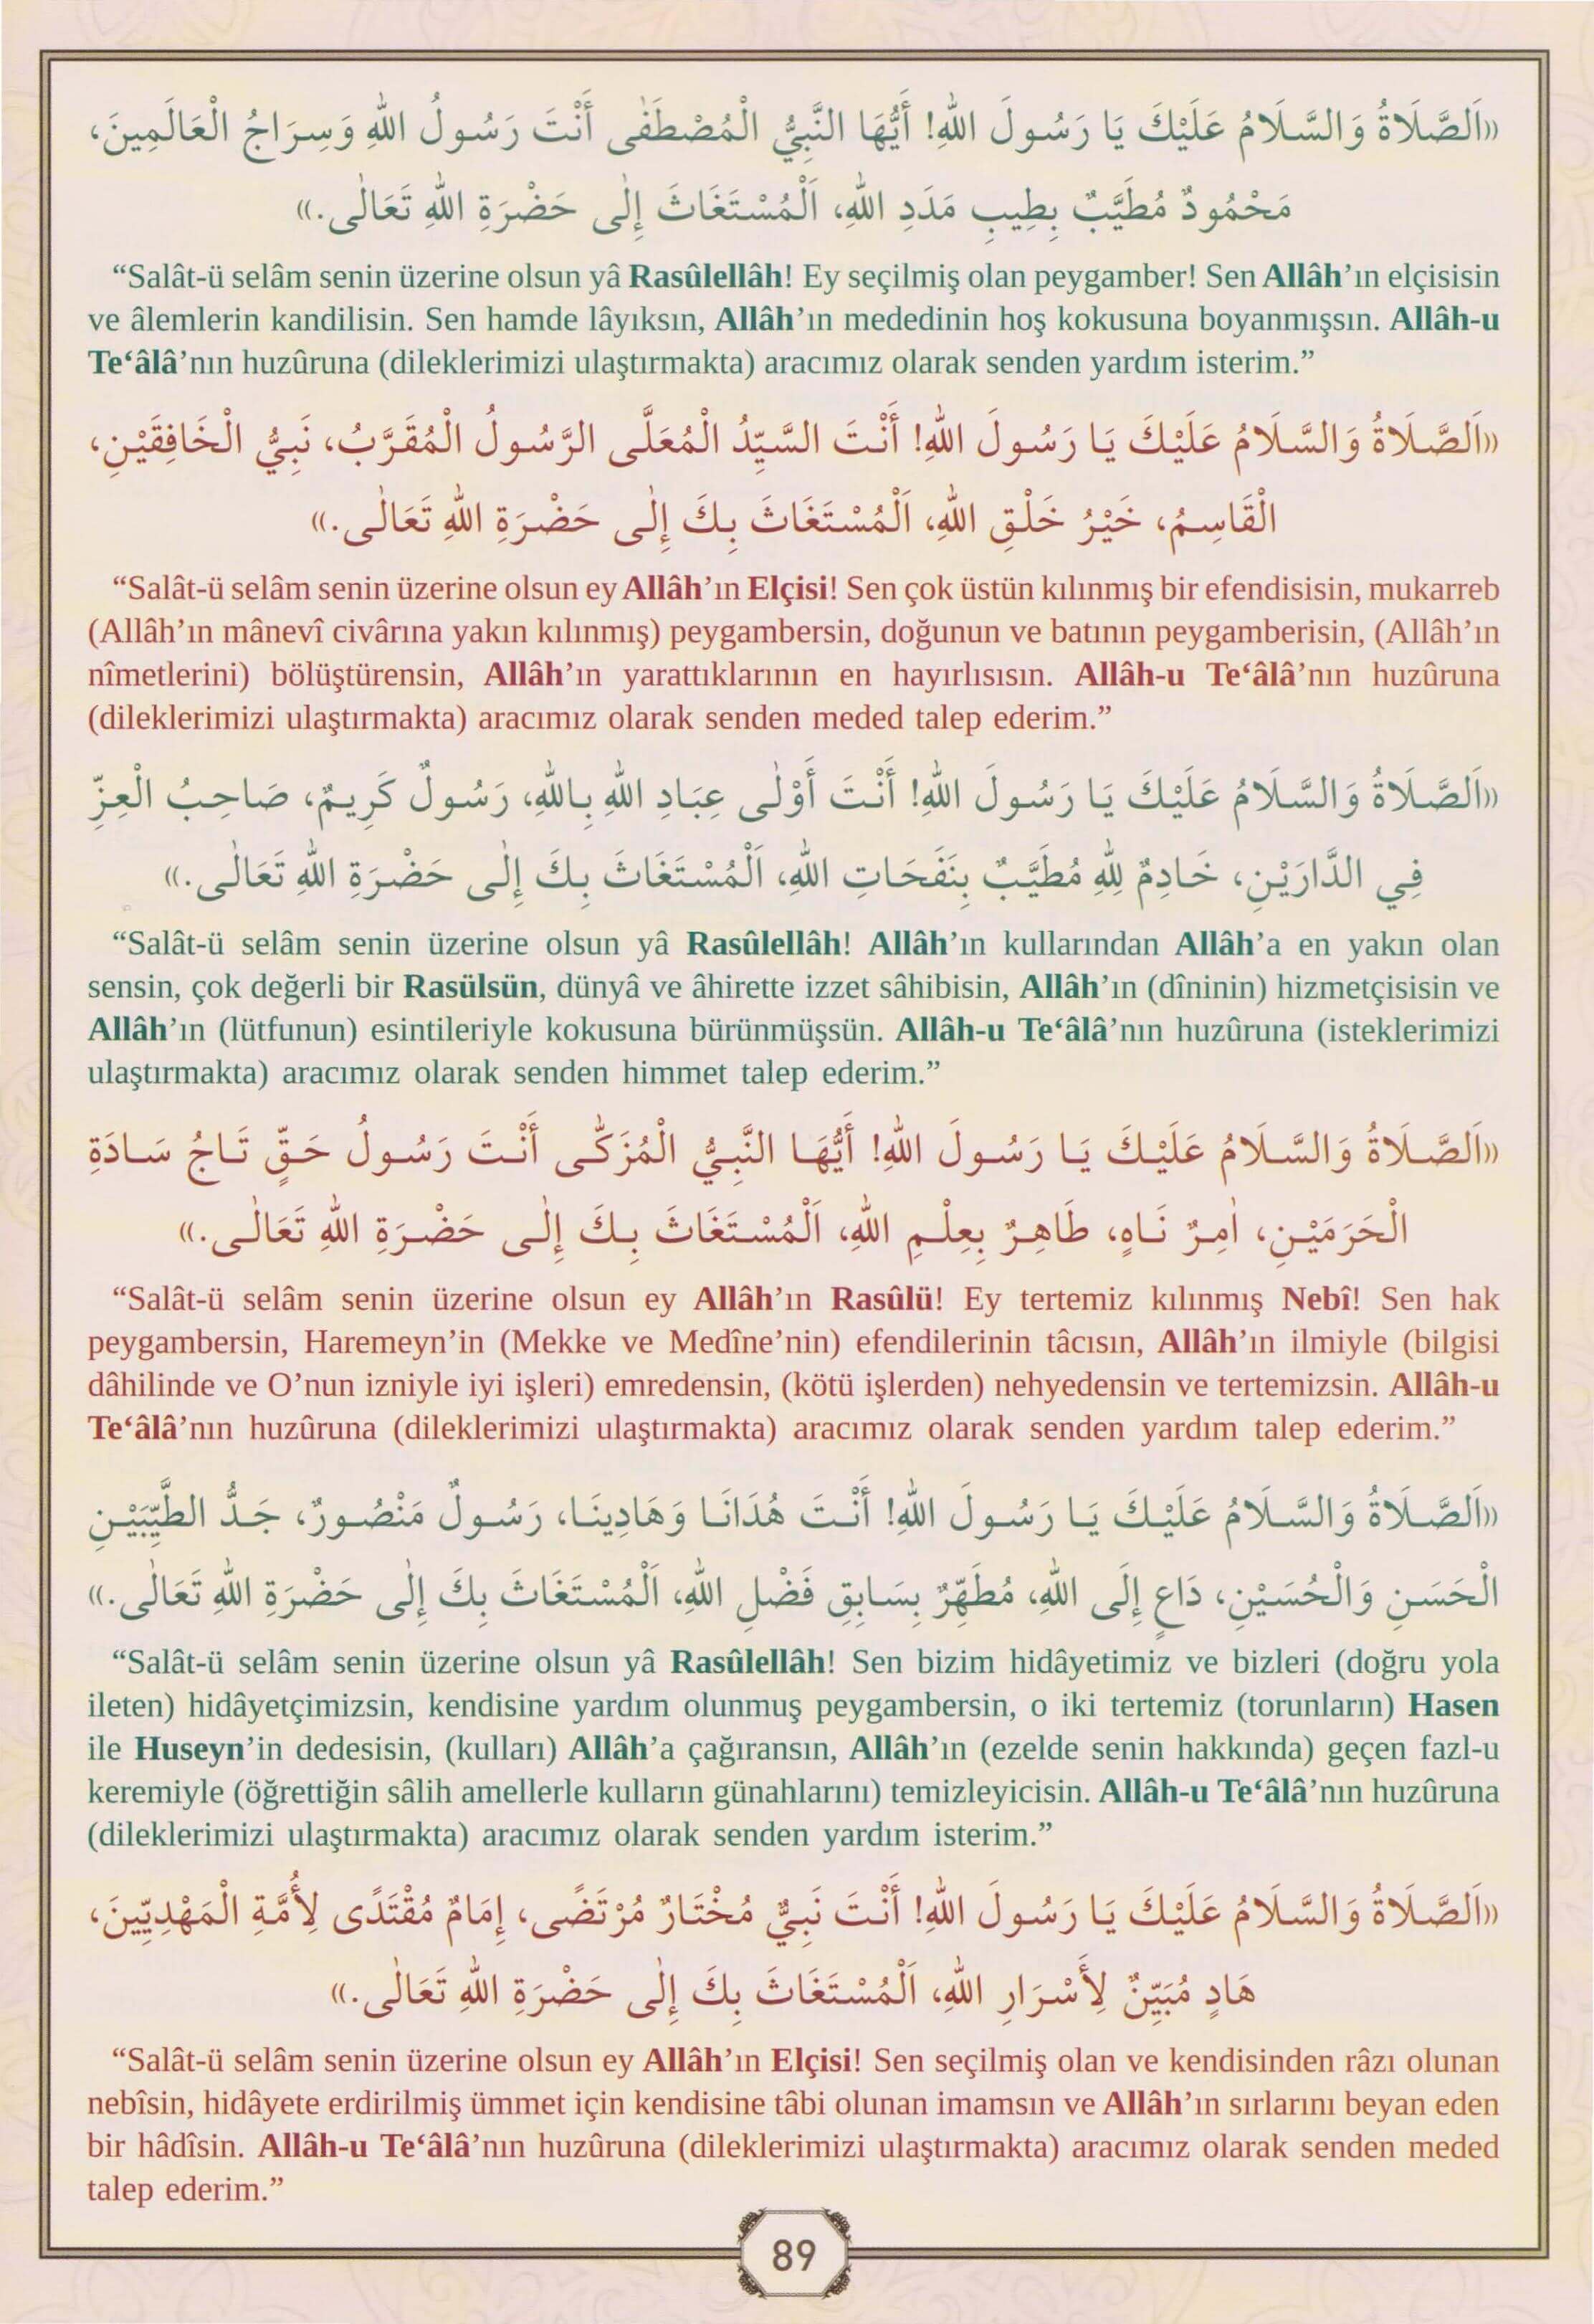 «اَلصَّلَاةُ وَالسَّلَامُ عَلَيْكَ يَا رَسُولَ اللهِ! أَيُّهَا النَّبِيُّ الْمُصْطَفٰى أَنْتَ رَسُولُ اللهِ وَسِرَاجُ الْعَالَمِينَ،
مَحْمُودٌ مُطَيَّبٌ بِطِيبِ مَدَدِ اللهِ، اَلْمُسْتَغَاثَ إِلٰى حَضْرَةِ اللهِ تَعَالٰى.»
“Salât-ü selâm senin üzerine olsun yâ Rasûlellâh! Ey seçilmiş olan peygamber! Sen Allâh’ın elçisisin
ve âlemlerin kandilisin. Sen hamde lâyıksın, Allâh’ın mededinin hoş kokusuna boyanmışsın. Allâh-u
Te‘âlâ’nın huzûruna (dileklerimizi ulaştırmakta) aracımız olarak senden yardım isterim.”
«اَلصَّلَاةُ وَالسَّلَامُ عَلَيْكَ يَا رَسُولَ اللهِ! أَنْتَ السَّيِّدُ الْمُعَلَّى الرَّسُولُ الْمُقَرَّبُ، نَبِيُّ الْخَافِقَيْنِ،
الْقَاسِمُ، خَيْرُ خَلْقِ اللهِ، اَلْمُسْتَغَاثَ بِكَ إِلٰى حَضْرَةِ اللهِ تَعَالٰى.»
“Salât-ü selâm senin üzerine olsun ey Allâh’ın Elçisi! Sen çok üstün kılınmış bir efendisisin, mukarreb
(Allâh’ın mânevî civârına yakın kılınmış) peygambersin, doğunun ve batının peygamberisin, (Allâh’ın
nîmetlerini) bölüştürensin, Allâh’ın yarattıklarının en hayırlısısın. Allâh-u Te‘âlâ’nın huzûruna
(dileklerimizi ulaştırmakta) aracımız olarak senden meded talep ederim.”
«اَلصَّلَاةُ وَالسَّلَامُ عَلَيْكَ يَا رَسُولَ اللهِ! أَنْتَ أَوْلٰى عِبَادِ اللهِ بِاللهِ، رَسُولٌ كَرِيمٌ، صَاحِبُ الْعِزِّ
فِي الدَّارَيْنِ، خَادِمٌ لِلّٰهِ مُطَيَّبٌ بِنَفَحَاتِ اللهِ، اَلْمُسْتَغَاثَ بِكَ إِلٰى حَضْرَةِ اللهِ تَعَالٰى.»
“Salât-ü selâm senin üzerine olsun yâ Rasûlellâh! Allâh’ın kullarından Allâh’a en yakın olan
sensin, çok değerli bir Rasülsün, dünyâ ve âhirette izzet sâhibisin, Allâh’ın (dîninin) hizmetçisisin ve
Allâh’ın (lütfunun) esintileriyle kokusuna bürünmüşsün. Allâh-u Te‘âlâ’nın huzûruna (isteklerimizi
ulaştırmakta) aracımız olarak senden himmet talep ederim.”
«اَلصَّلَاةُ وَالسَّلَامُ عَلَيْكَ يَا رَسُولَ اللهِ! أَيُّهَا النَّبِيُّ الْمُزَكّٰى أَنْتَ رَسُولُ حَقٍّ تَاجُ سَادَةِ
الْحَرَمَيْنِ، اٰمِرٌ نَاهٍ، طَاهِرٌ بِعِلْمِ اللهِ، اَلْمُسْتَغَاثَ بِكَ إِلٰى حَضْرَةِ اللهِ تَعَالٰى.»
“Salât-ü selâm senin üzerine olsun ey Allâh’ın Rasûlü! Ey tertemiz kılınmış Nebî! Sen hak
peygambersin, Haremeyn’in (Mekke ve Medîne’nin) efendilerinin tâcısın, Allâh’ın ilmiyle (bilgisi
dâhilinde ve O’nun izniyle iyi işleri) emredensin, (kötü işlerden) nehyedensin ve tertemizsin. Allâh-u
Te‘âlâ’nın huzûruna (dileklerimizi ulaştırmakta) aracımız olarak senden yardım talep ederim.”
«اَلصَّلَاةُ وَالسَّلَامُ عَلَيْكَ يَا رَسُولَ اللهِ! أَنْتَ هُدَانَا وَهَادِينَا، رَسُولٌ مَنْصُورٌ، جَدُّ الطَّيِّبَيْنِ
الْحَسَنِ وَالْحُسَيْنِ، دَاعٍ إِلَى اللهِ، مُطَهِّرٌ بِسَابِقِ فَضْلِ اللهِ، اَلْمُسْتَغَاثَ بِكَ إِلٰى حَضْرَةِ اللهِ تَعَالٰى.»
“Salât-ü selâm senin üzerine olsun yâ Rasûlellâh! Sen bizim hidâyetimiz ve bizleri (doğru yola
ileten) hidâyetçimizsin, kendisine yardım olunmuş peygambersin, o iki tertemiz (torunların) Hasen
ile Huseyn’in dedesisin, (kulları) Allâh’a çağıransın, Allâh’ın (ezelde senin hakkında) geçen fazl-u
keremiyle (öğrettiğin sâlih amellerle kulların günahlarını) temizleyicisin. Allâh-u Te‘âlâ’nın huzûruna
(dileklerimizi ulaştırmakta) aracımız olarak senden yardım isterim.”
«اَلصَّلَاةُ وَالسَّلَامُ عَلَيْكَ يَا رَسُولَ اللهِ! أَنْتَ نَبِيٌّ مُخْتَارٌ مُرْتَضًى، إِمَامٌ مُقْتَدًى لِأُمَّةِ الْمَهْدِيِّينَ،
هَادٍ مُبَيِّنٌ لِأَسْرَارِ اللهِ، اَلْمُسْتَغَاثَ بِكَ إِلٰى حَضْرَةِ اللهِ تَعَالٰى.»
“Salât-ü selâm senin üzerine olsun ey Allâh’ın Elçisi! Sen seçilmiş olan ve kendisinden râzı olunan
nebîsin, hidâyete erdirilmiş ümmet için kendisine tâbi olunan imamsın ve Allâh’ın sırlarını beyan eden
bir hâdîsin. Allâh-u Te‘âlâ’nın huzûruna (dileklerimizi ulaştırmakta) aracımız olarak senden meded
talep ederim.”
89